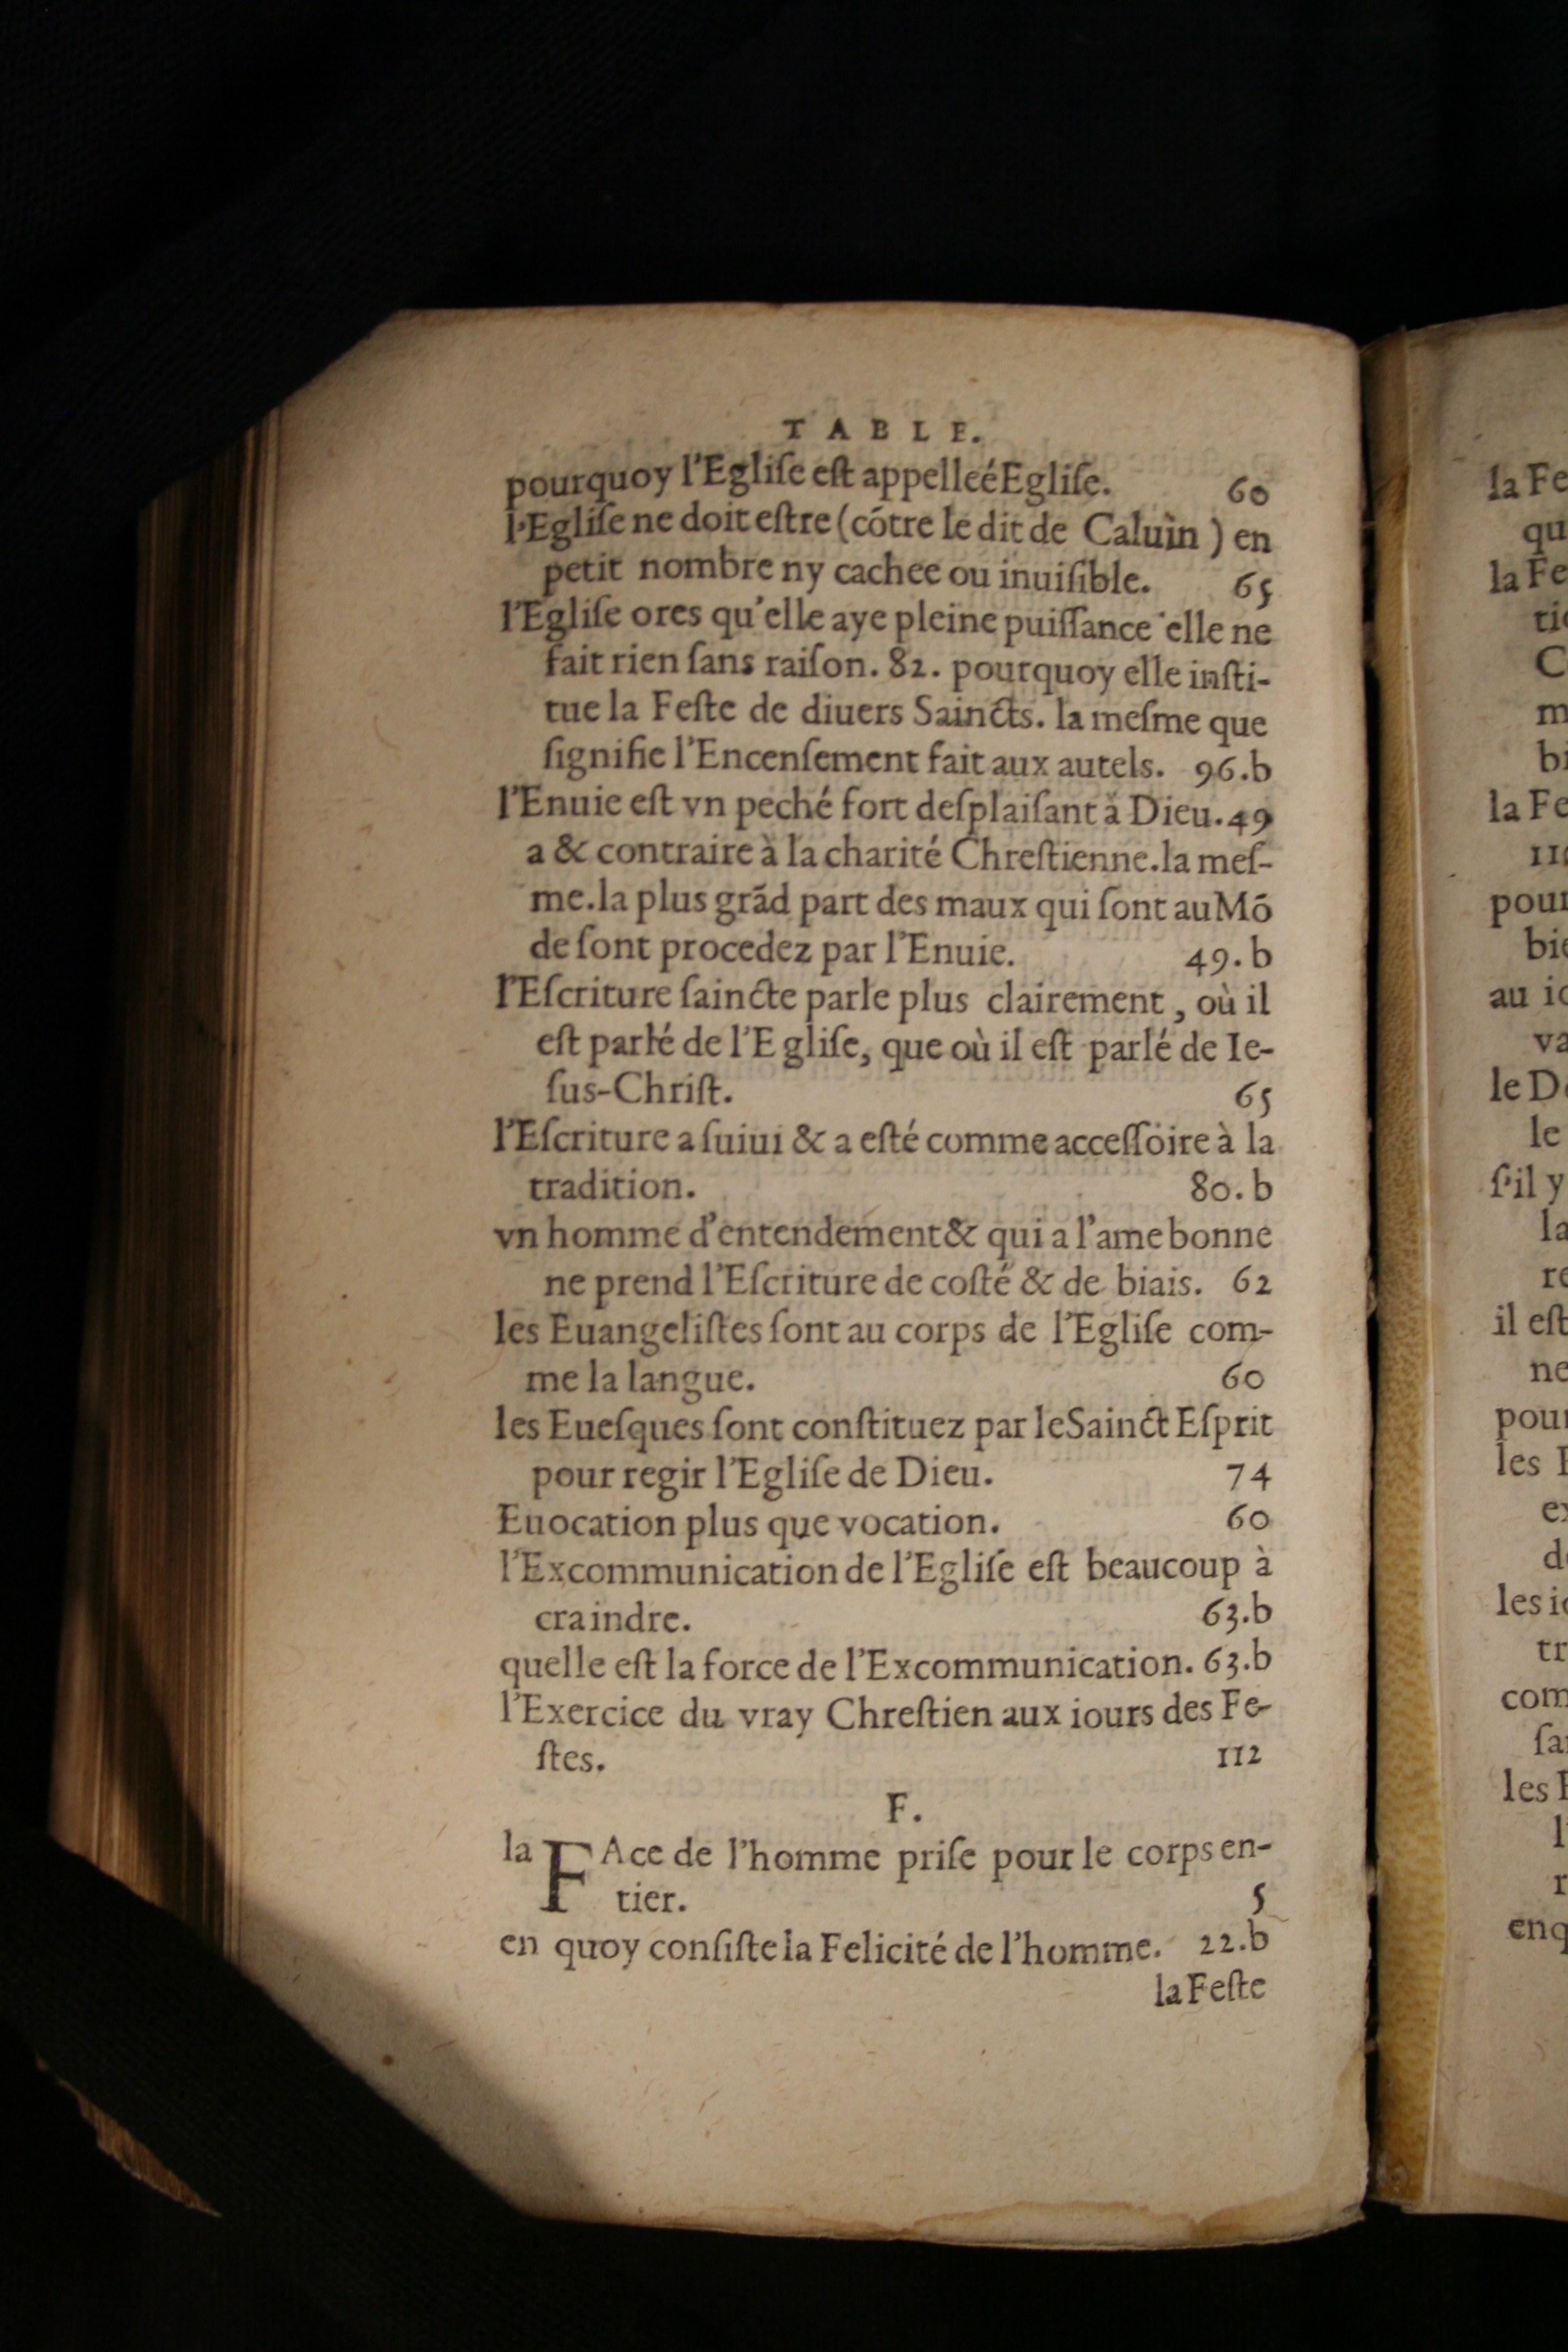 TABLE.
pourquoy l'Egliſe eſt appelleéEgliſe. 60
l'Egliſe ne doit eſtre (cótre le dit de Caluin) en
petit nombre ny cachee ou inuiſible. 65
l'Egliſe ores qu'elle aye pleine puiſſance elle ne
fait rien ſans raiſon. 82. pourquoy elle inſti-
tue la Feſte de diuers Saincts. la meſme que
ſignifie l'Encenſement fait aux autels. 96.b
l'Enuie eſt vn peché fort deſplaiſant à Dieu.49
a & contraire à la charité Chreſtienne.la meſ-
me.la plus grãd part des maux qui ſont au Mõ
de ſont procedez par l'Enuie. 49.b
l'Eſcriture ſaincte parle plus clairement, où il
eſt parlé de l'Egliſe, que où il eſt parlé de Ie-
ſus-Chriſt. 65
l'Eſcriture a ſuiui & a eſté comme acceſſoire à la
tradition. 80.b
vn homme d'entendement & qui a l'ame bonne
ne prend l'Eſcriture de coſté & de biais. 62
les Euangeliſtes ſont au corps de l'Egliſe com-
me la langue. 60
les Eueſques ſont conſtituez par le Sainct Eſprit
pour regir l'Egliſe de Dieu. 74
Euocation plus que vocation. 60
l'Excommunication de l'Egliſe eſt beaucoup à
craindre. 63.b
quelle eſt la force de l'Excommunication. 63.b
l'Exercice du vray Chreſtien aux iours des Fe-
ſtes. 112
F.
la FAce de l'homme priſe pour le corps en-
tier. 5
en quoy conſiſte la Felicité de l'homme. 22.b
la Feſte